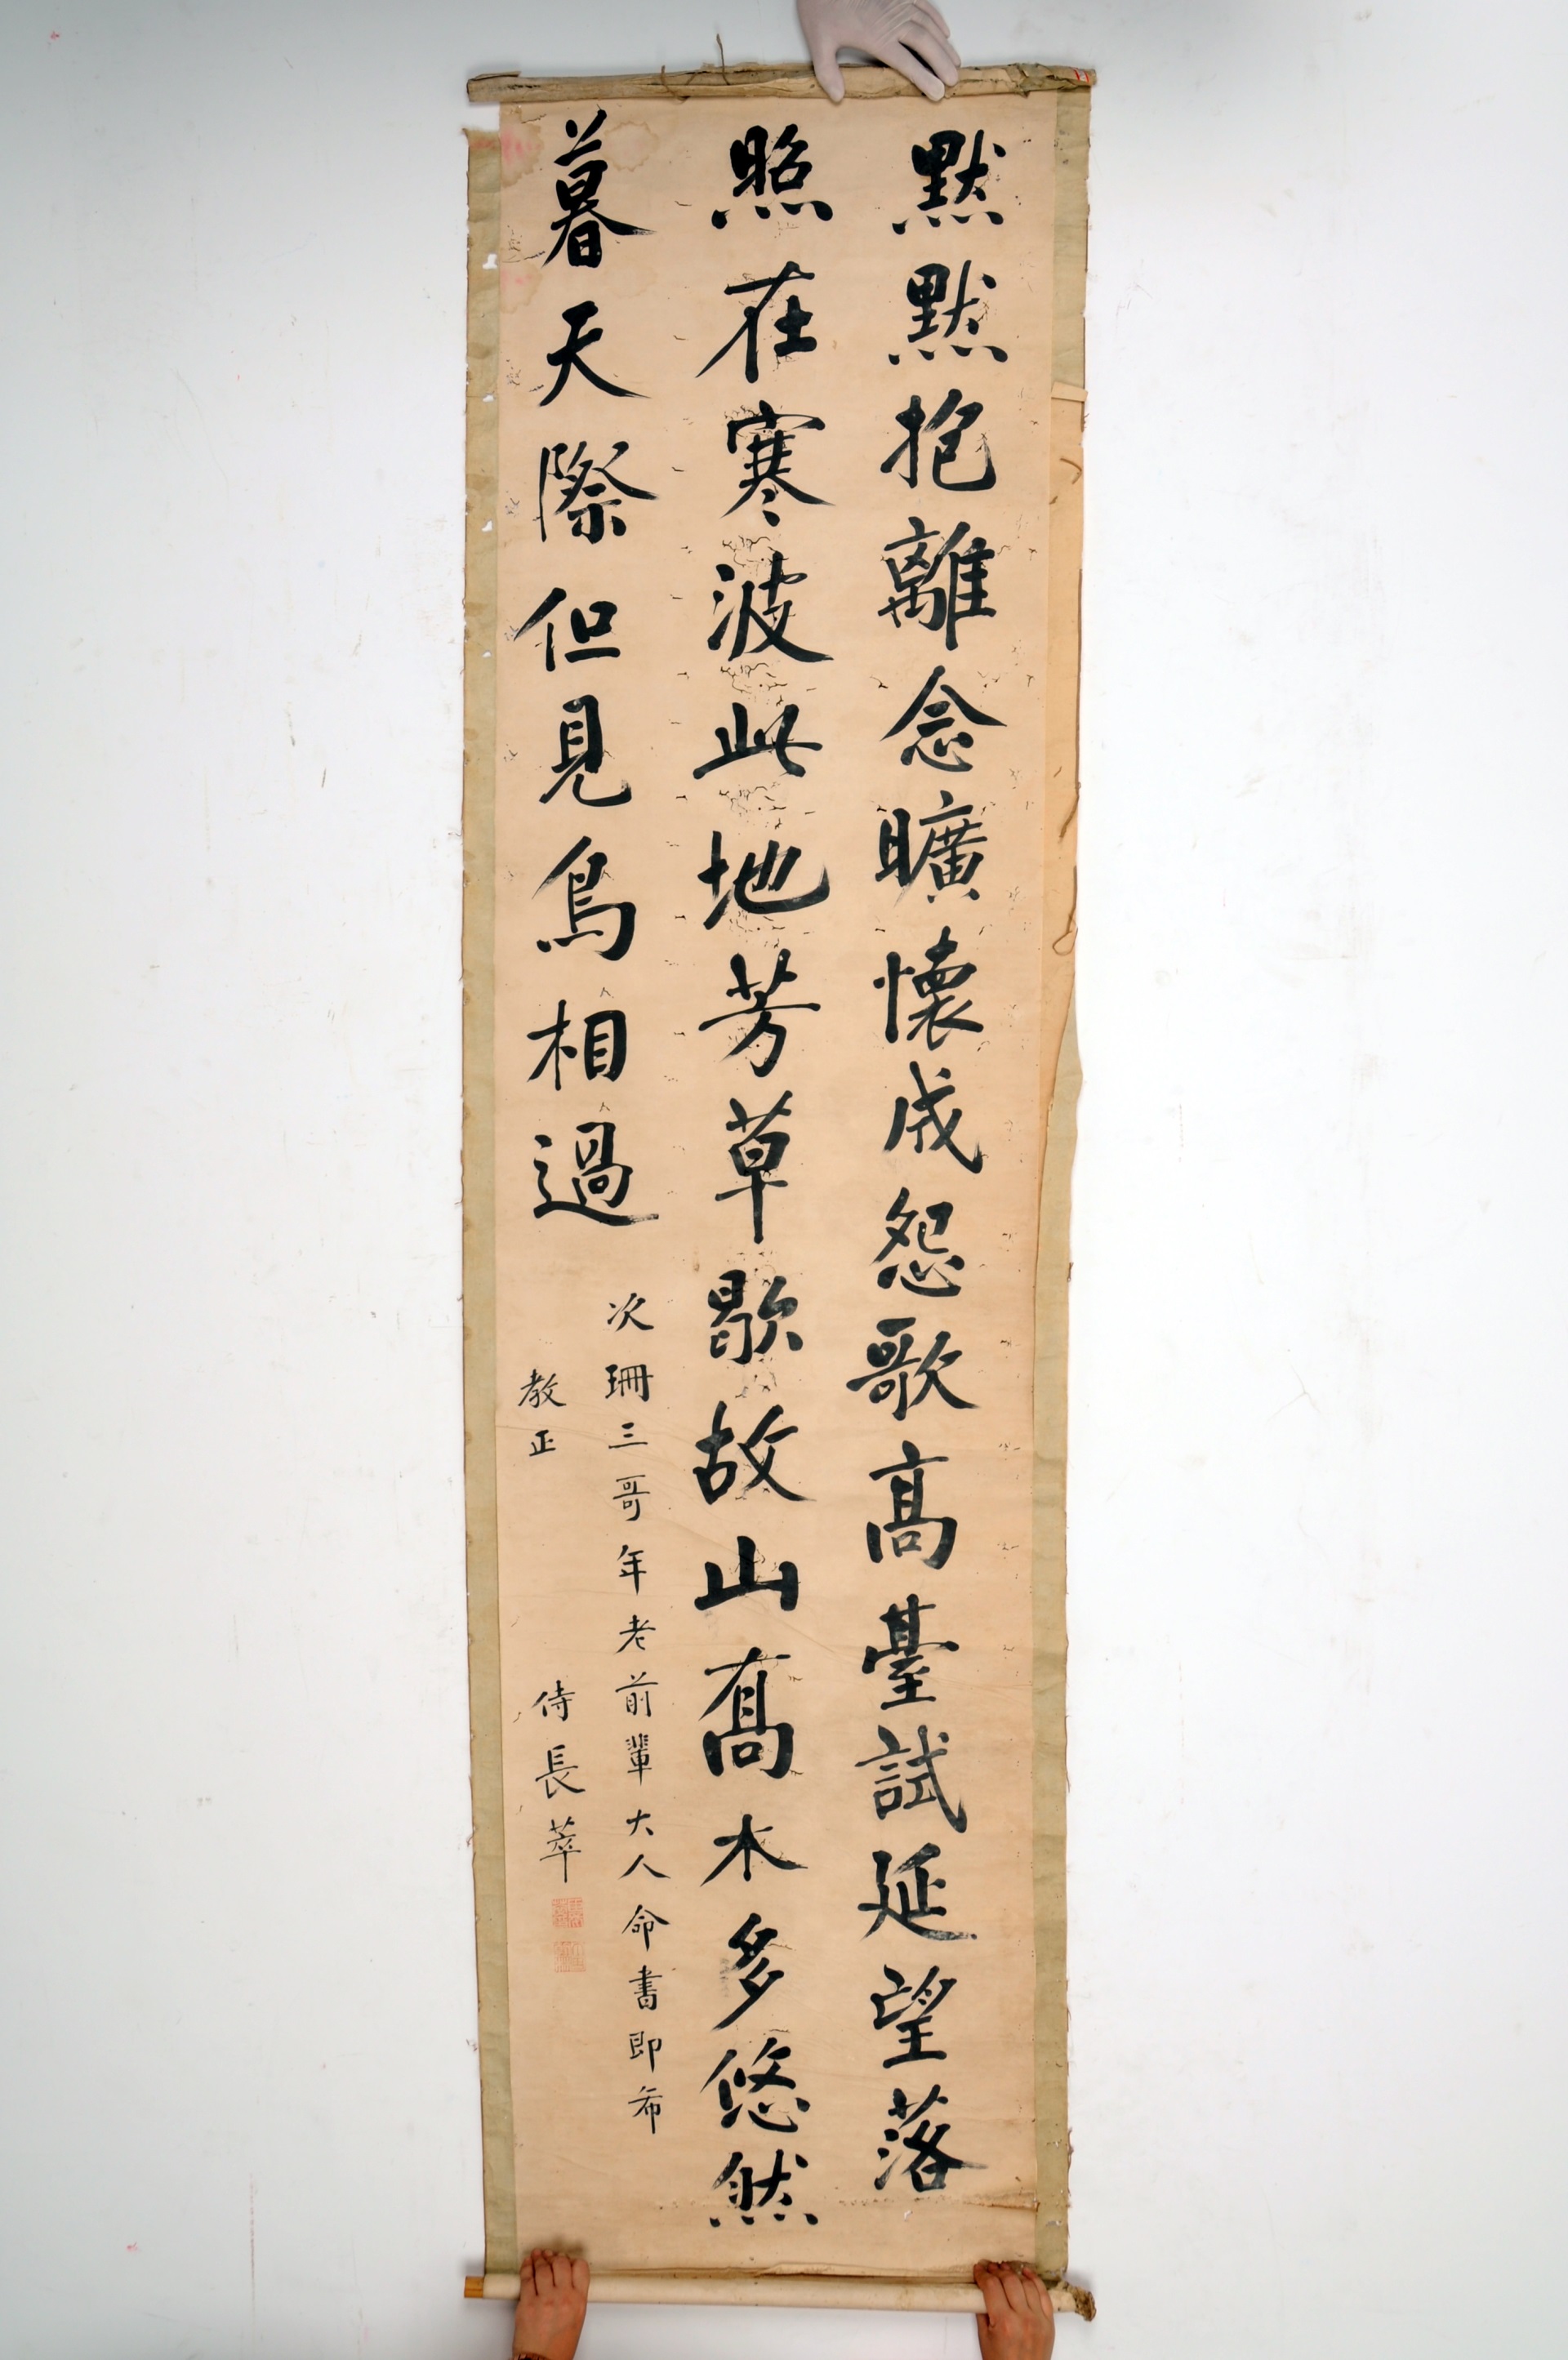 黙黙抱離念曠懷成怨歌高臺試延望落
照在寒波此地芳草歇故山喬木多悠然
暮天際但見鳥相過
次珊三哥年老前輩大人命書即希
教正
侍長萃